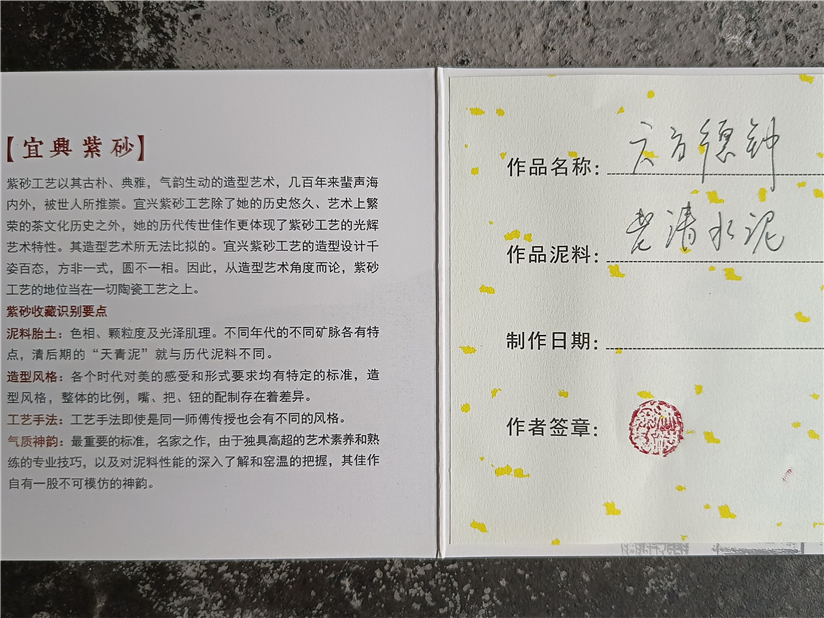 【宜興紫砂】
紫砂工艺以其古朴、典雅，气韵生动的造型艺术，几百年来蜚声海
内外，被世人所推崇。宜兴紫砂工艺除了她的历史悠久、艺术上繁
荣的茶文化历史之外，她的历代传世佳作更体现了紫砂工艺的光辉
艺术特性。其造型艺术所无法比拟的。宜兴紫砂工艺的造型设计千
姿百态，方非一式，圆不一相。因此，从造型艺术角度而论，紫砂
工艺的地位当在一切陶瓷工艺之上。
紫砂收藏识别要点
泥料胎土：色相、颗粒度及光泽肌理。不同年代的不同矿脉各有特
点，清后期的“天青泥”就与历代泥料不同。
造型风格：各个时代对美的感受和形式要求均有特定的标准，造
型风格，整体的比例，嘴、把、钮的配制存在着差异。
工艺手法：工艺手法即使是同一师傅传授也会有不同的风格。
气质神韵：最重要的标准，名家之作，由于独具高超的艺术素养和熟
练的专业技巧，以及对泥料性能的深入了解和窑温的把握，其佳作
自有一股不可模仿的神韵。
作品名称：六方德钟
作品泥料：老清水泥
制作日期：
作者签章：